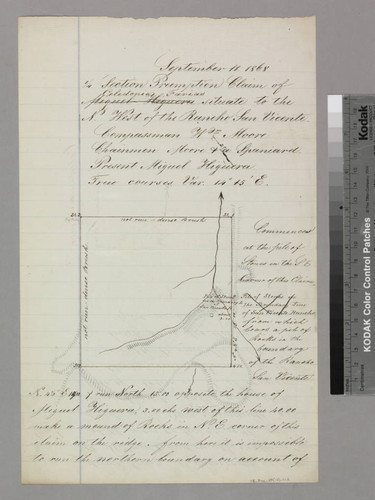 September 11 1868
¼ Section Preemption Claim of
Celedonia Farias
Miguel Higuera situate to the
N. West of the Rancho San Vicente
Compassman Wm Moore
Chainmen Moore & a Spaniard
Present Miguel Higuera
True courses Var. 14° 15' E.
not run - dense Brush
not run - dense Brush
Commenced
at the pile of
Stones in the S. E
corner of this Claim
Pile of Rocks in
the Boundary Line
from which
bears a pile of
Rocks in the
boundary
of the Rancho
San Vicente
N. 45° E. I run North 15.00 opposite the house of
Miguel Higuera, 3.00 chs west of this line 40.00
make a mound of Rocks in N. E corner of this
claim on the ridge, from him it is impossible
to run the northern boundary on account of
KODAK Color Control Patches
Kodak